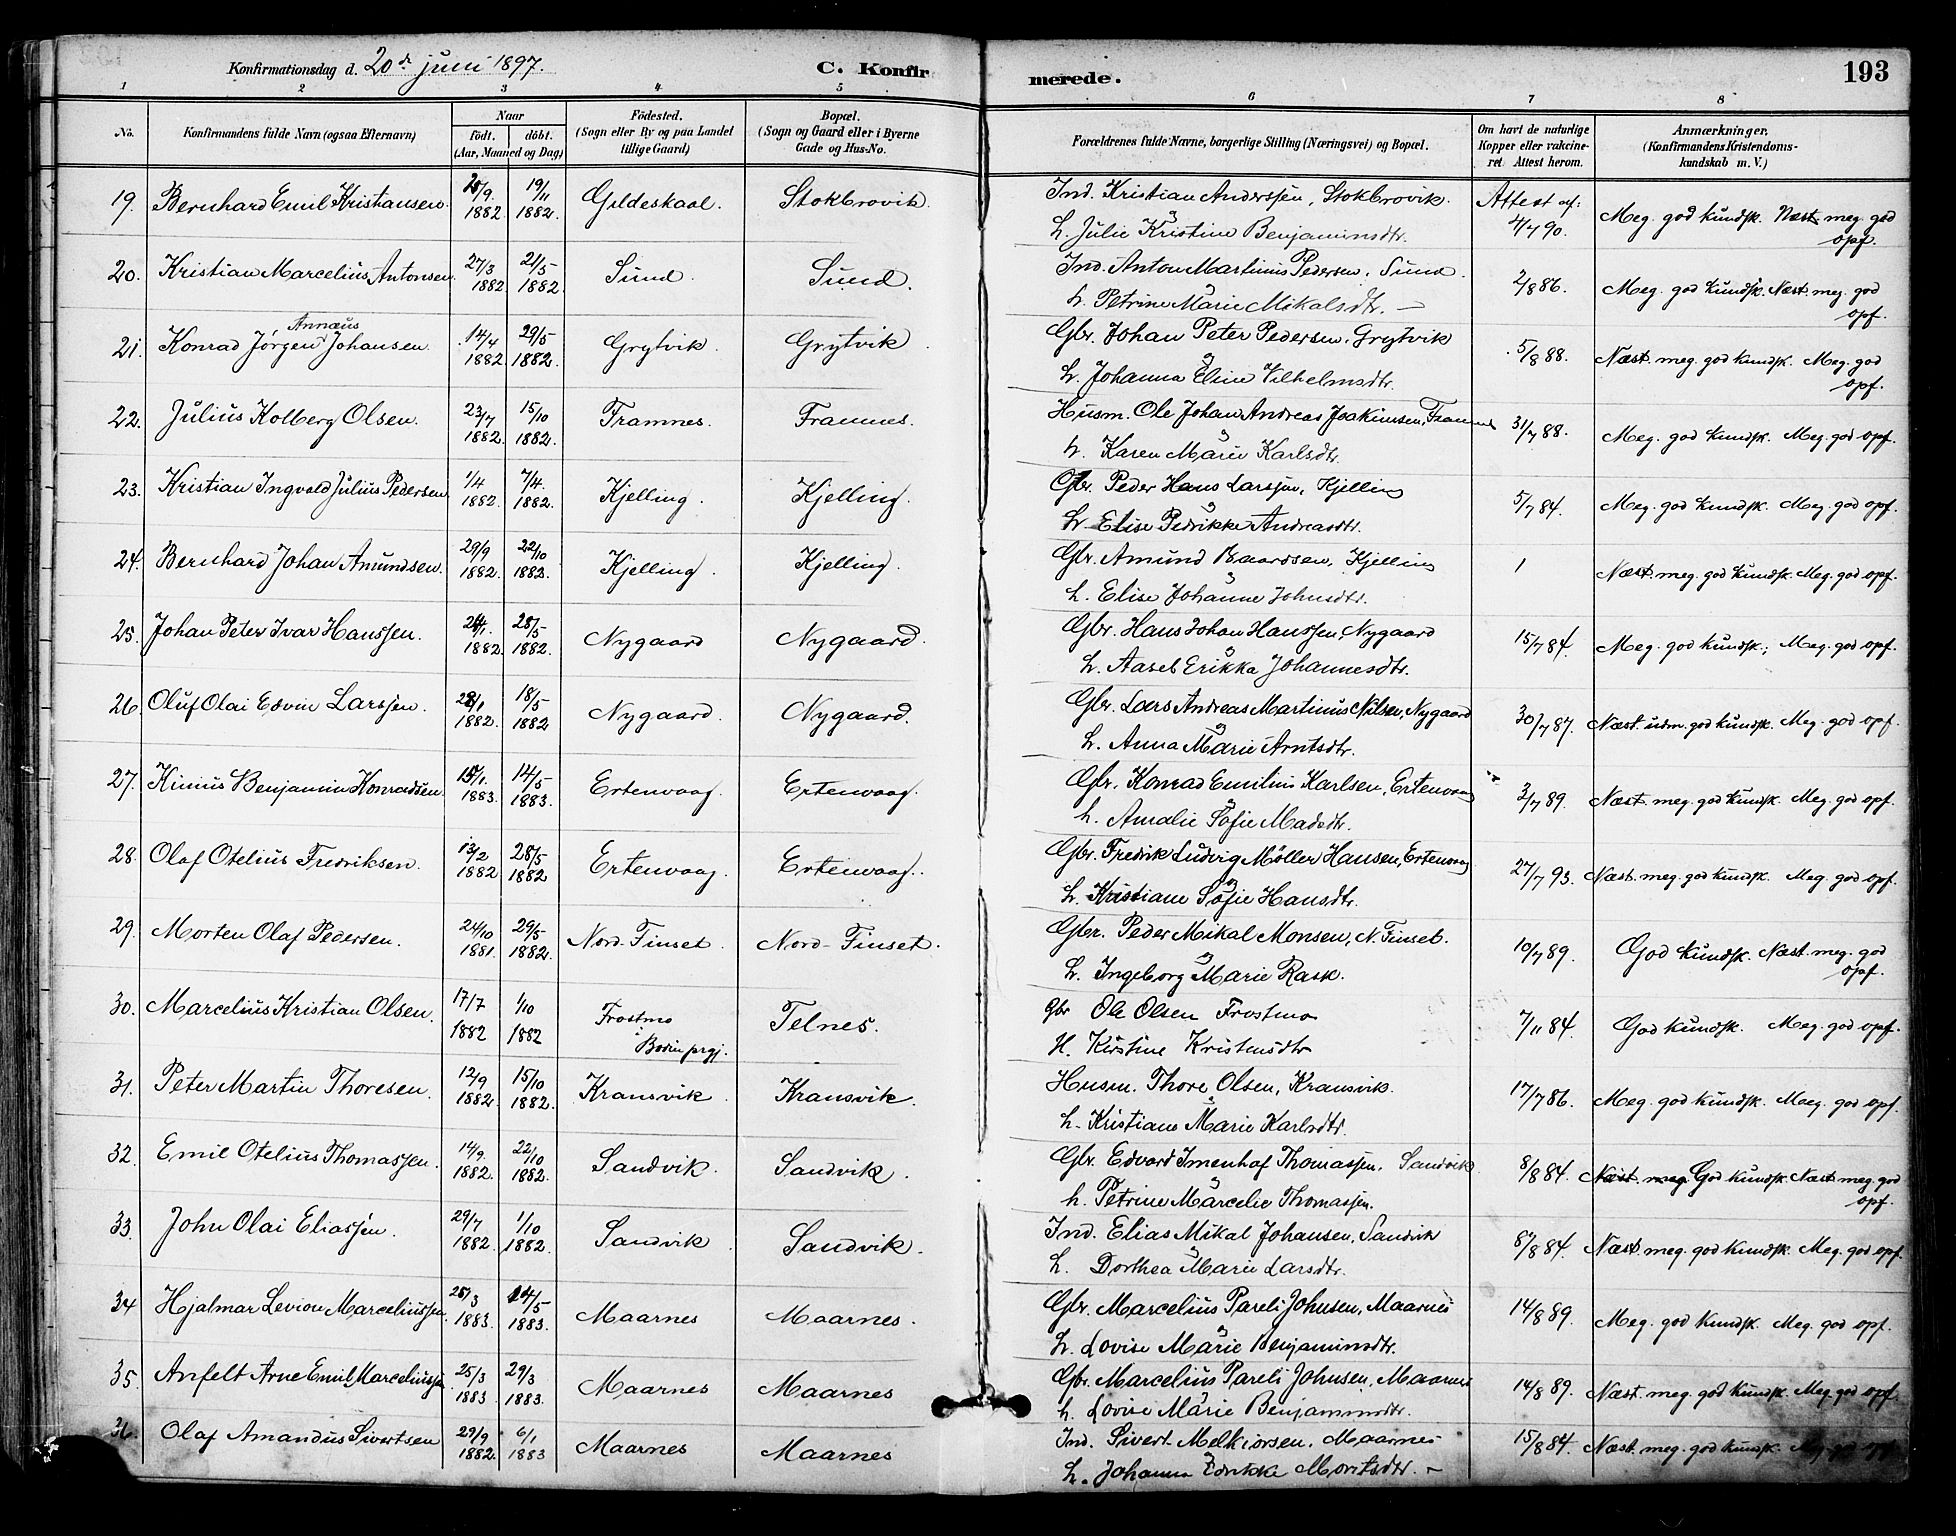 Konfirmationsdag d. 20de juni 1897. C. Konfirmerede. 193
1 2 3 4 5 6 7 8
No. Konfirmandens fulde Navn (ogsaa Efternavn) Naar födt. döbt. (Aar, Maaned og Dag) Födested. (Sogn eller By og paa Landet tillige Gaard) Bopæl. (Sogn og Gaard eller i Byerne Gade og Hus-No. Forældrenes fulde Navne, borgerlige Stilling (Næringsvei) og Bopæl. Om havt de naturlige Kopper eller vaccineret. Attest herom. Anmærkninger. (Konfirmandens Kristendomskundskab m. V.)
19. Bernhard Emil Kristiansen. /9 1882 19/11 1882. Gildeskaal. Stokbrovik. Ind. Kristian Anderssen, Stokbrovik. Attest af: 4/7 90. Meg. god kundsk. Næst meg. god opf.
L. Julie Kristine Benjaminsdtr.
20. Kristian Marcelius Antonsen. 27/3 1882 21/5 1882. Sund. Sund. Ind. Anton Martinus Pedersen, Sund. 2/8 86. Meg. god kundsk. Næst. meg. god opf.
h. Petrine Marie Mikalsdtr. —
21. Konrad Jørgen Annæus Johansen. 14/4 1882 29/5 1882. Grytvik. Grytvik. Gbr. Johan Peter Pedersen, Grytvik 5/8 88. Næst. meg. god kundsk. Meg. god opf.
h. Johanna Eline Vilhelmsdtr.
22. Julius Kolberg Olsen. 23/7 1882. 15/10 1882. Framnes. Framnes. Husm. Ole Johan Andreas Joakimsen, Framnes 31/7 88. Meg. god kundsk. Meg. god opf.
h. Karen Marie Karlsdtr.
23. Kristian Ingvald Julius Pedersen 1/4 1882. 7/4. 1882. Kjelling. Kjelling. Gbr. Peder Hans Larssen, Kjelling 5/7 84. Meg. god kundsk. Meg. god opf.
h. Elise Pedrikke Andreasdtr.
24. Bernhard Johan Amundsen. 29/9 1882. 22/10 1882. Kjelling. Kjelling. Gbr. Amund Baardsen, Kjelling 1 Næst. meg. god kundsk. Meg. god opf.
h. Elise Johanne Johnsdtr.
25. Johan Peter Ivar Hanssen. /1. 1882. 28/5 1882. Nygaard Nygaard. Gbr. Hans Johan Hanssen, Nygaard 15/7 84. Meg. god kundsk., Meg. god opf.
h. Aasel Erikka Johannesdtr.
26. Oluf Olai Edvin Larssen. /1 1882. 18/5 1882 Nygaard. Nygaard. Gbr. Lars Andreas Martinus Nilsen, Nygaard 30/7 87. Næst. udm. god kundsk. Meg. god opf.
h. Anna Marie Arntsdtr.
27. Kinius Benjamin Konradsen. 15/1. 1883. 14/5 1883. Ertenvaag. Ertenvaag. Gbr. Konrad Emilius Karlsen, Ertenvaag 3/7 89. Næst. meg. god kundsk. Meg. god opf.
h. Amalie Sofie Madsdtr.
28. Olaf Otelius Fredriksen. 13/2 1882 28/5 1882 Ertenvaag. Ertenvaag. Gbr. Fredrik Ludvig Möller Hansen, Ertenvaag 27/7 93. Næst. meg. god kundsk. Meg. god opf.
h. Kristiane Sofie Hansdtr.
29. Morten Olaf Pedersen. 24/10 1881. 29/5 1882. Nord-Finset. Nord-Finset. Gbr. Peder Mikal Monsen, N. Finset. 10/7 89. God kundsk. Næst. meg. god opf.
h. Ingeborg Marie Rask.
30. Marcelius Kristian Olsen. 17/7 1882 1/10 1882 Frostmo i Bodin prgj. Telnes. Gbr Ole Olsen Frostmo 7/11 84. God kundsk. Meg. god opf.
H. Kirstine Kristensdtr
31. Peter Martin Thoresen. 12/9 1882. 15/10 1882. Kransvik. Kransvik. Husm. Thore Olsen, Kransvik. 17/7 86. Meg. god kundsk. Meg. god opf.
h. Kristiane Marie Karlsdtr.
32. Emil Otelius Thomassen. 14/9. 1882. 22/10 1882. Sandvik. Sandvik. Gbr. Edvard Imenhof Thomassen. Sandvik 8/8 84. Næst. meg God kundsk. Næst meg. god opf.
h. Petrine Marcelie Thomassen.
33. John Olai Eliassen. 29/7 1882. 1/10 1882. Sandvik. Sandvik. Ind. Elias Mikal Johansen, Sandvik /8 84. Næst. meg. god kundsk. Meg. god opf.
h. Dorthea Marie Larsdtr.
34 Hjalmar Levion Marceliussen. 25/3 1883. /5 1883. Maarnes Maarnes. Gbr. Marcelius Pareli Johnsen, Maarnes 14/8 89. Meg. god kundsk. Meg. god opf.
h. Lovise Marie Benjaminsdtr.
35. Anfelt Arne Emil Marceliussen 25/3 1883 29/3 1883. Maarnes Maarnes Gbr. Marcelius Pareli Johnsen, Maarnes 14/8 89. Næst. meg. god kundsk. Meg. god opf.
h. Lovise Marie Benjaminsdtr.
36. Olaf Amandus Sivertsen 29/9 1882. 6/1 1883 Maarnes Maarnes Ind. Sivert Melkiorsen, Maarnes 15/8 84. Næst. meg. god kundsk. Meg. god opf.
h. Johanna Edrikke Moritsdtr. —